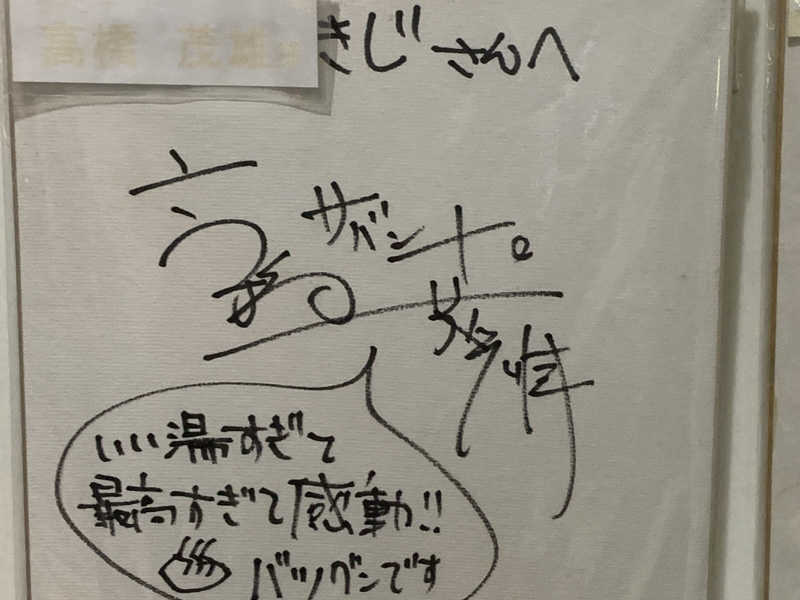 高橋 茂雄
きじさんへ
サバンナ。
いい湯すぎて
最高すぎて感動!!
♨ バツグンです